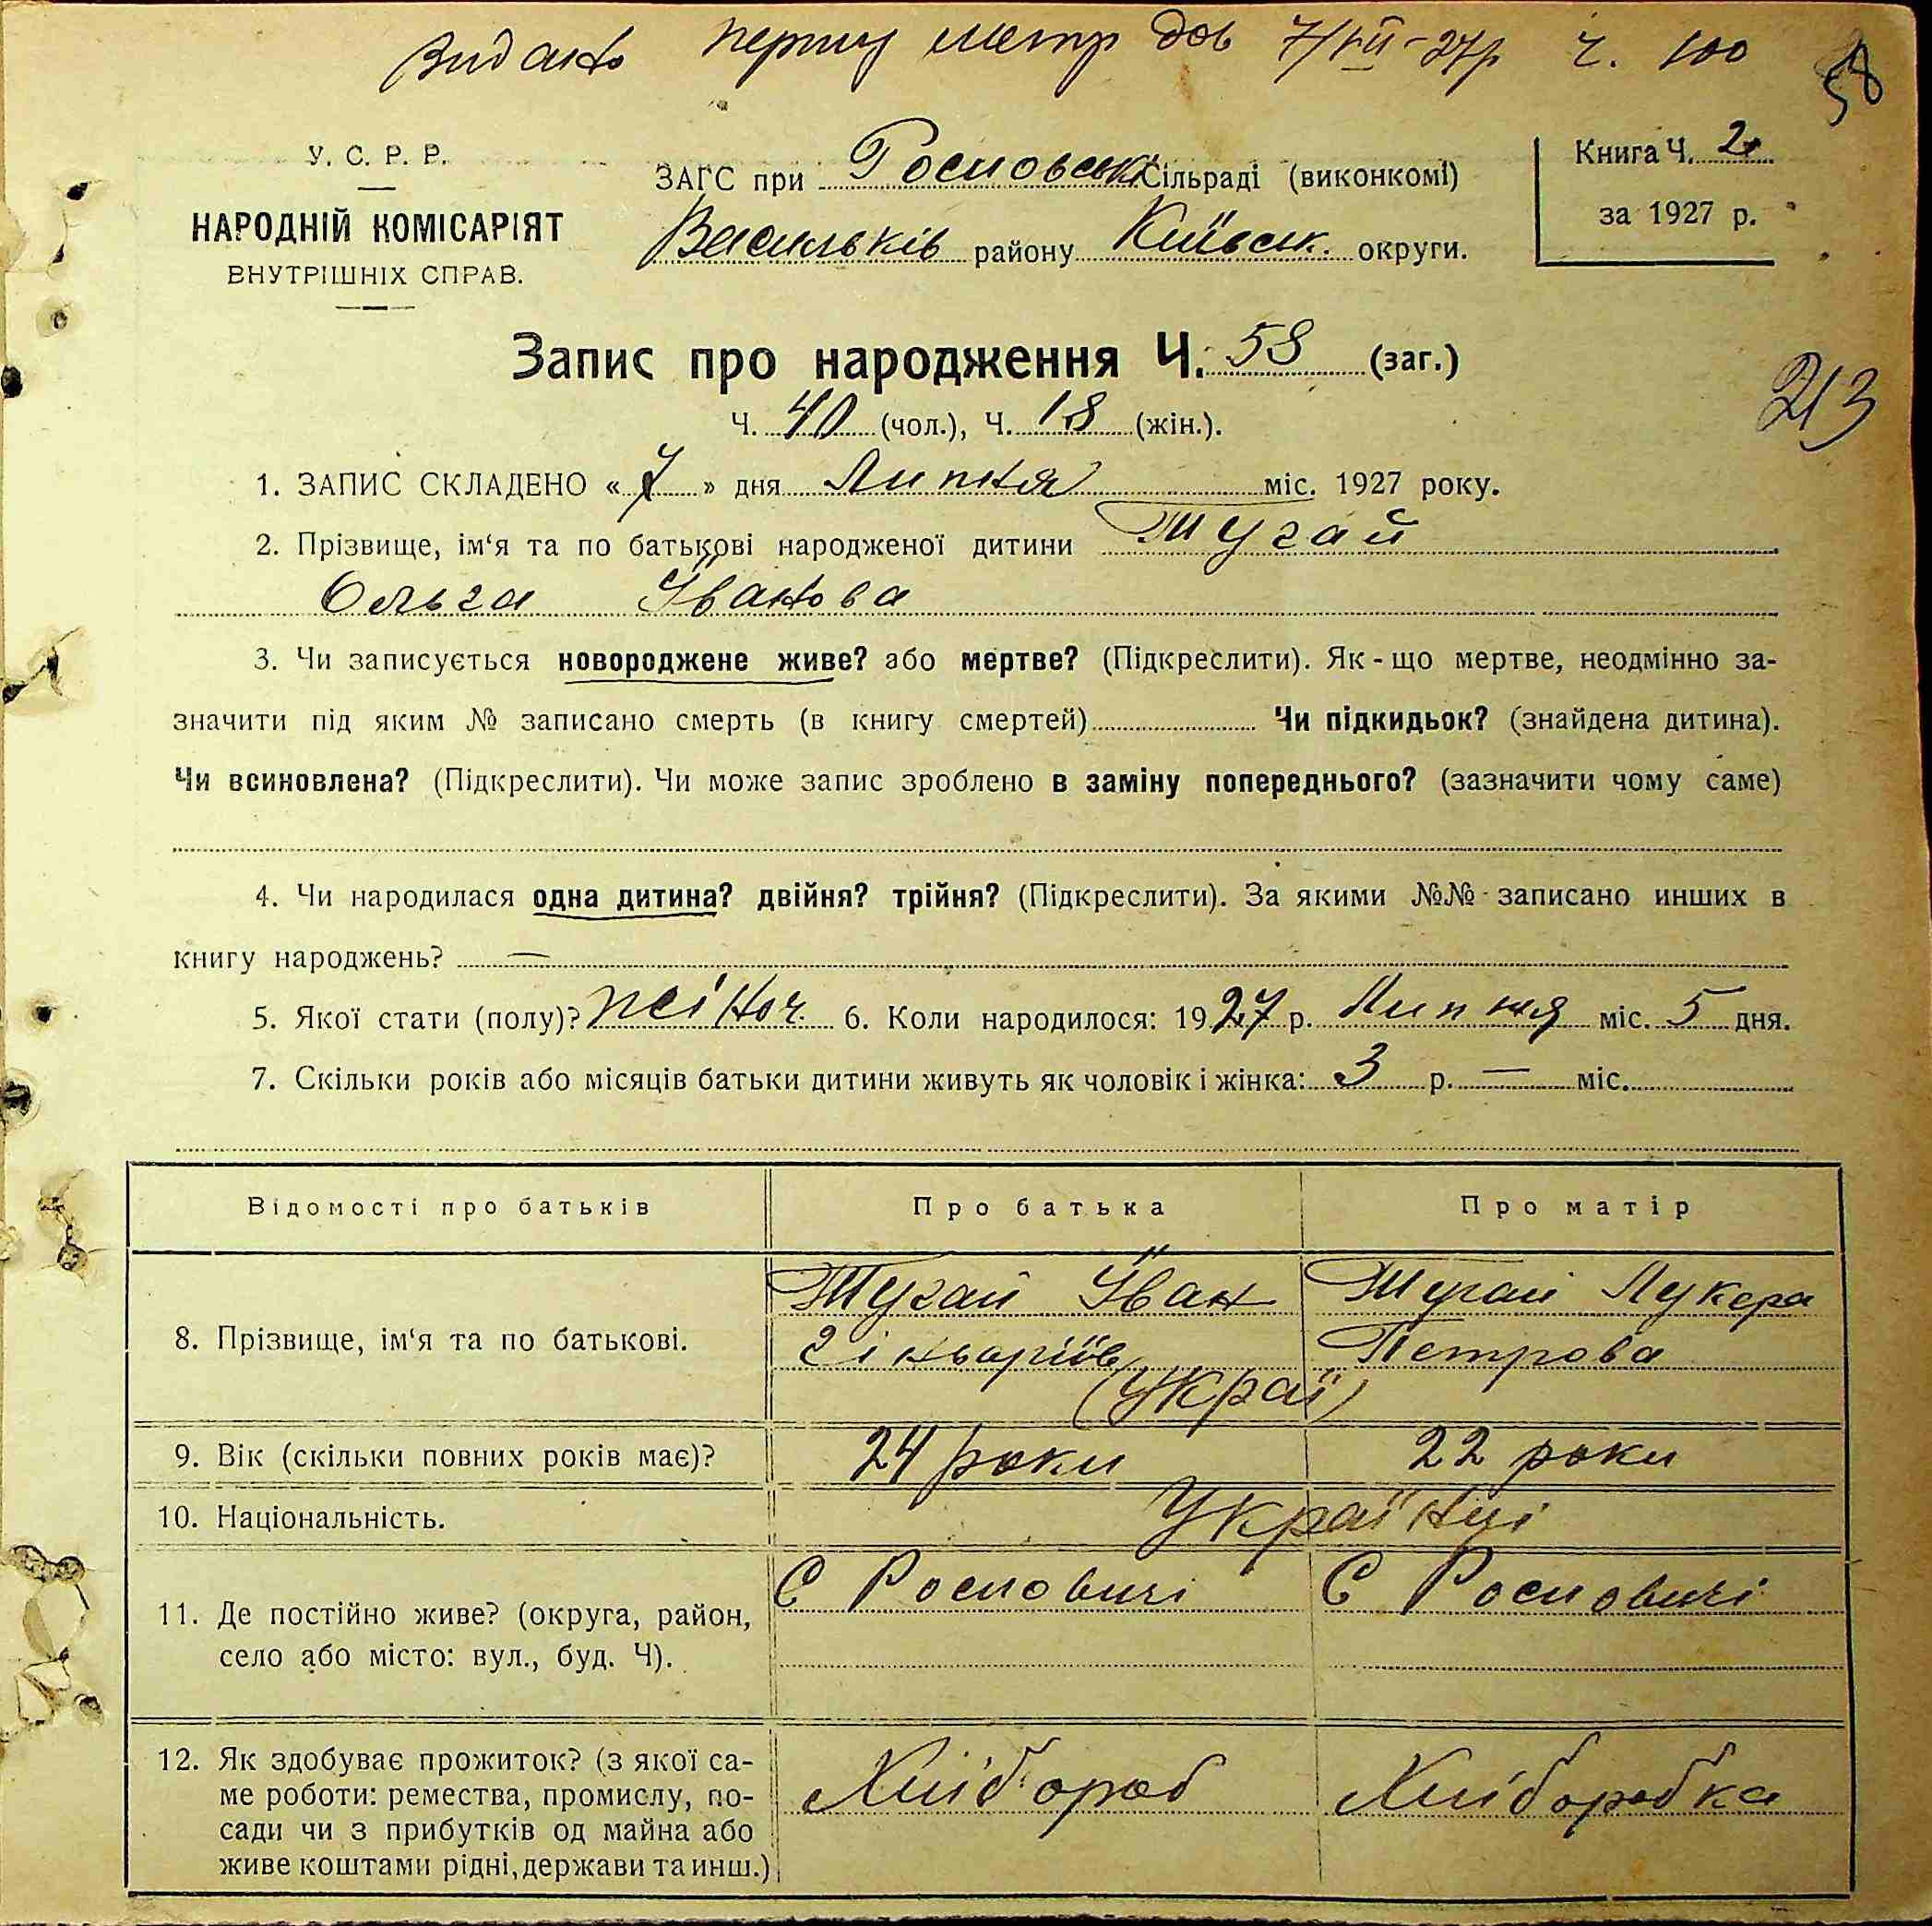 Видано першу метр дов 7/VII-27р Ч. 100
58
У. С. Р. Р.
НАРОДНІЙ КОМІСАРІЯТ
ВНУТРІШНІХ СПРАВ.
ЗАГС при Росновськ Сільраді (виконкомі)
Васильків району Київськ. округи.
Книга Ч. 2
за 1927 р.
Запис про народження Ч. 58 (заг.)
213
Ч. 40 (чол.), Ч. 18 (жін.).
1. ЗАПИС СКЛАДЕНО « 7 » дня Липня міс. 1927 року.
2. Прізвище, ім'я та по батькові народженої дитини Тугай
Ольга Іванова
3. Чи записується новороджене живе? або мертве? (Підкреслити). Як-що мертве, неодмінно за-
значити під яким № записано смерть (в книгу смертей) Чи підкидьок? (знайдена дитина).
Чи всиновлена? (Підкреслити). Чи може запис зроблено в заміну попереднього? (зазначити чому саме)
4. Чи народилася одна дитина? двійня? трійня? (Підкреслити). За якими №№ записано инших в
книгу народжень? —
5. Якої стати (полу)? жіноч. 6. Коли народилося: 1927 р. Липня міс. 5 дня.
7. Скільки років або місяців батьки дитини живуть як чоловік і жінка: 3 р. — міс.
Відомості про батьків Про батька Про матір
8. Прізвище, ім'я та по батькові.
Тугай Іван
(Украї)
Тугай Лукера
Петрова
9. Вік (скільки повних років має)? 24 роки 22 роки
10. Національність. Українці
11. Де постійно живе? (округа, район,
село або місто: вул., буд. Ч).
С Росновичі
С Росновичі
12. Як здобуває прожиток? (з якої са-
ме роботи: ремества, промислу, по-
сади чи з прибутків од майна або
живе коштами рідні, держави та инш.)
Хлібороб
Хліборобка